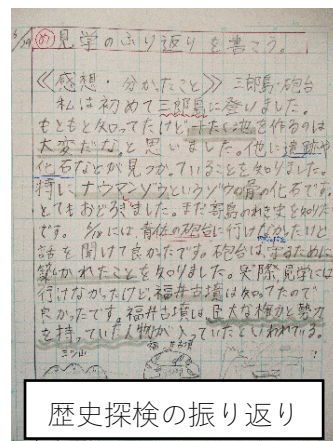 5/29 め 見学のふり返りを書こう。
≪感想・分かたこと≫ 三郎島・砲台
私は初めて三郎島に登りました。
もともと知ってたけど、十たく池を作るのは
大変だな。と思いました。他に遺跡や
化石などが見つかっていることを知りました。
特に、ナウマンゾウというゾウの骨の化石です。
とてもおどろきました。まだ寄島のれき史を知りた
です。 には、青佐の砲台に行けなかったけど
話を聞けて良かたです。砲台は、守るために
築かれたことを知りました。実際見学には
行けなかったけど、福井古墳は知ってたので
良かったです。福井古墳は、巨大な権力と勢力
を持っていた人物が入っていたといわれている。
三ツ山
歴史探検の振り返り